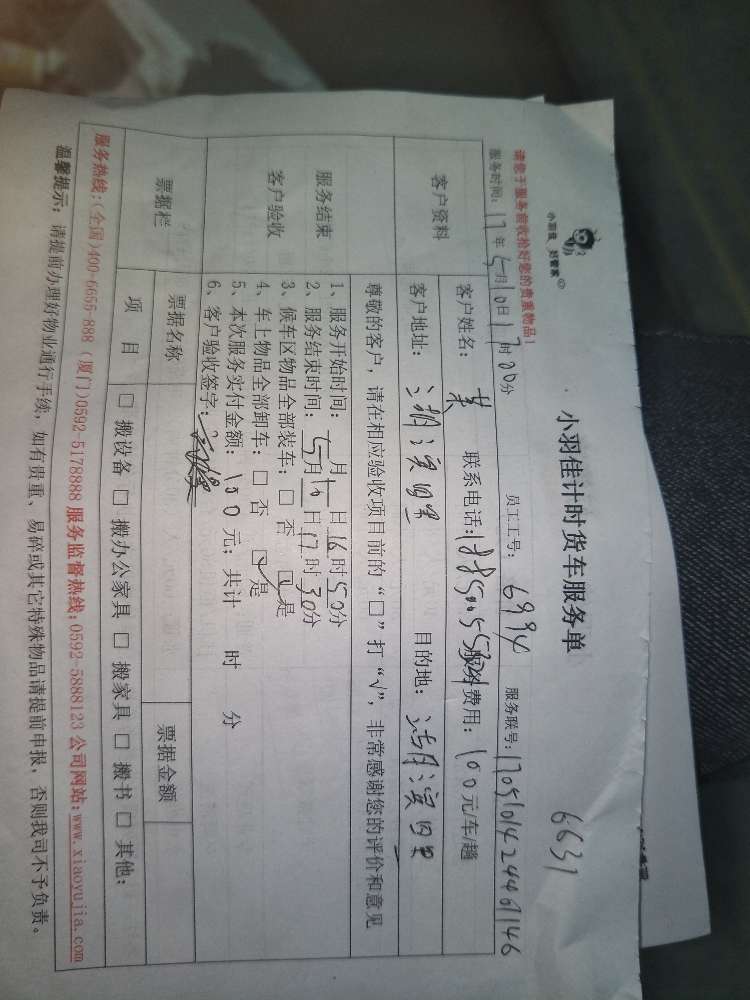 小羽佳 好管家
小羽佳计时货车服务单
6631
请您于服务前收拾好您的贵重物品！
服务时间：17年5月10日17时00分 员工工号：6994 服务联号：17051014244461146
客户资料
客户姓名：黄 联系电话： 服务费用：100元/车/趟
客户地址：湖滨四里 目的地：湖滨四里
尊敬的客户，请在相应验收项目前的“□”打“√”，非常感谢您的评价和意见
服务结束
客户验收
1、服务开始时间：月10日16时50分
2、服务结束时间：5月10日17时30分
3、候车区物品全部装车：□否 ☑是
4、车上物品全部卸车：□否 ☑是
5、本次服务实付金额：100元；共计 时 分
6、客户验收签字：
票据栏
票据名称 票据金额
项目 □搬设备 □搬办公家具 □搬家具 □搬书 □其他：
服务热线：(全国)400-6655-888 (厦门)0592-5178888 服务监督热线：0592-5888123 公司网站：www.xiaoyujia.com
温馨提示：请提前办理好物业通行手续，如有贵重、易碎或其它特殊物品请提前申报，否则我司不予负责。